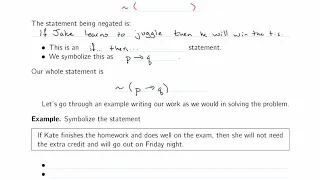 ~ ( )
The statement being negated is:
If Jake learns to juggle then he will win the t.s.
• This is an if... then... statement.
• We symbolize this as p → q .
Our whole statement is
~ (p → q)
Let's go through an example writing our work as we would in solving the problem.
Example. Symbolize the statement
If Kate finishes the homework and does well on the exam, then she will not need
the extra credit and will go out on Friday night.
•
•